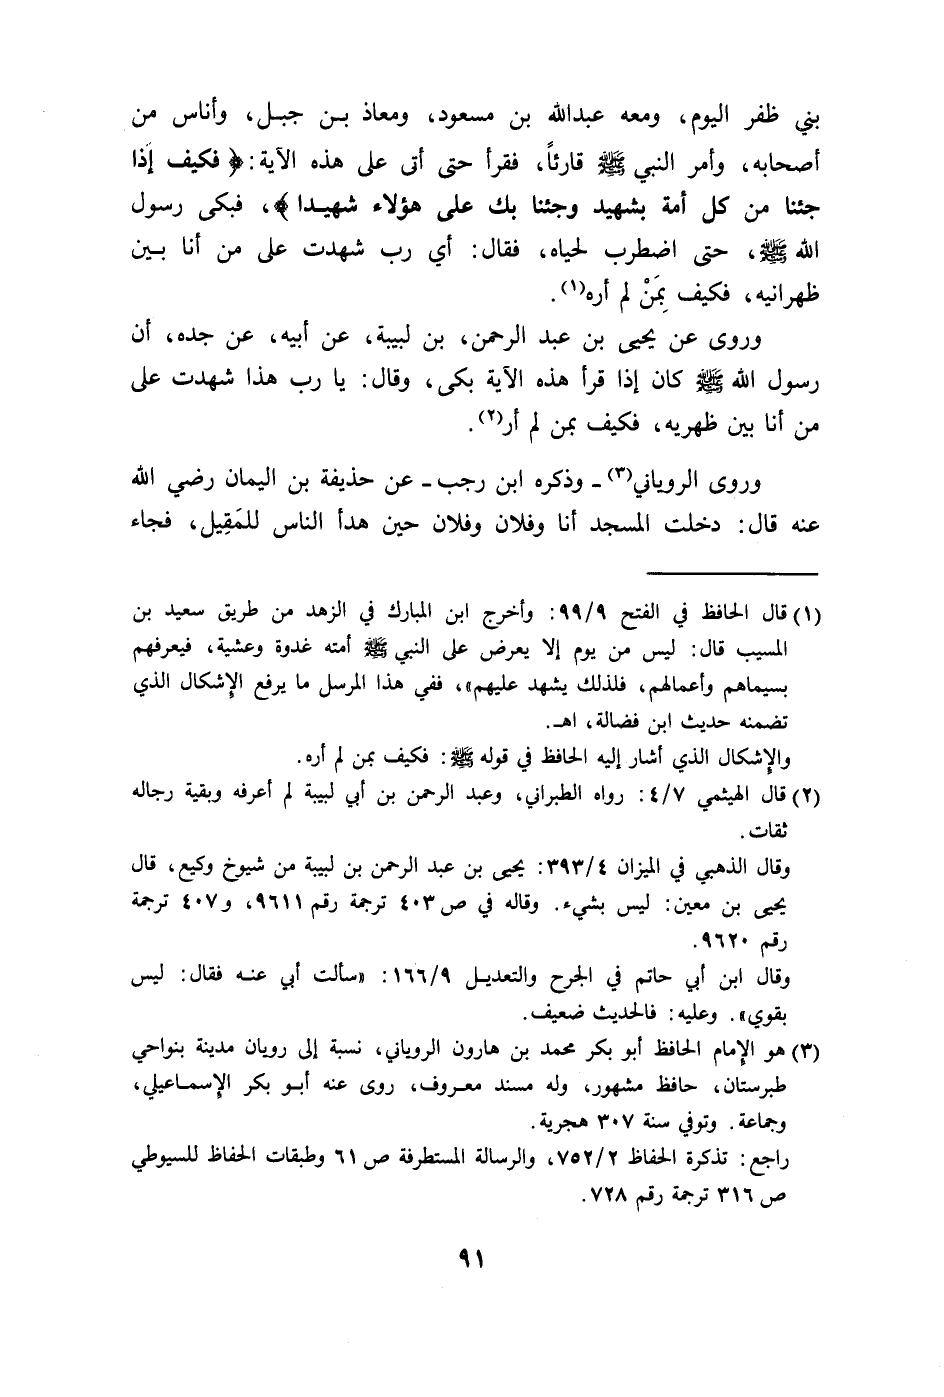 بني ظفر اليوم، ومعه عبدالله بن مسعود، ومعاذ بـن جبـل، وأناس من
أصحابه، وأمر النبي ﷺ قارئاً، فقرأ حتى أتى على هذه الآية: ﴿ فكيف إذا
جئنا من كل أمة بشهيد وجئنا بك على هؤلاء شهيـدا ﴾، فبكى رسول
الله ﷺ، حتى اضطرب لحياه، فقال: أي رب شهدت على من أنا بـين
ظهرانيه، فكيف بِمَنْ لم أره(١).
وروى عن يحيى بن عبد الرحمن، بن لبيبة، عن أبيه، عن جده، أن
رسول الله ﷺ كان إذا قرأ هذه الآية بكى، وقال: يا رب هذا شهدت على
من أنا بين ظهريه، فكيف بمن لم أر(٢).
وروى الروياني(٣) ـ وذكره ابن رجب ـ عن حذيفة بن اليمان رضي الله
عنه قال: دخلت المسجد أنا وفلان وفلان حين هدأ الناس للمَقِيل، فجاء
(١) قال الحافظ في الفتح ٩٩/٩: وأخرج ابن المبارك في الزهد من طريق سعيد بن
المسيب قال: ليس من يوم إلا يعرض على النبي ﷺ أمته غدوة وعشية، فيعرفهم
بسيماهم وأعمالهم، فلذلك يشهد عليهم»، ففي هذا المرسل ما يرفع الإشكال الذي
تضمنه حديث ابن فضالة، اهـ.
والإشكال الذي أشار إليه الحافظ في قوله ﷺ: فكيف بمن لم أره.
(٢) قال الهيثمي ٤/٧: رواه الطبراني، وعبد الرحمن بن أبي لبيبة لم أعرفه وبقية رجاله
ثقات.
وقال الذهبي في الميزان ٣٩٣/٤: يحيى بن عبد الرحمن بن لبيبة من شيوخ وكيع، قال
يحيى بن معين: ليس بشيء. وقاله في ص ٤٠٣ ترجمة رقم ٩٦١١، و٤٠٧ ترجمة
رقم ٩٦٢٠.
وقال ابن أبي حاتم في الجرح والتعديـل ١٦٦/٩: «سألت أبي عنـه فقال: ليس
بقوي». وعليه: فالحديث ضعيف.
(٣) هو الإمام الحافظ أبو بكر محمد بن هارون الروياني، نسبة إلى رويان مدينة بنواحي
طبرستان، حافظ مشهور، وله مسند معـروف، روى عنه أبـو بكر الإسمـاعيلي،
وجماعة. وتوفي سنة ٣٠٧ هجرية.
راجع: تذكرة الحفاظ ٧٥٢/٢، والرسالة المستطرفة ص ٦١ وطبقات الحفاظ للسيوطي
ص ٣١٦ ترجمة رقم ٧٢٨.
٩١